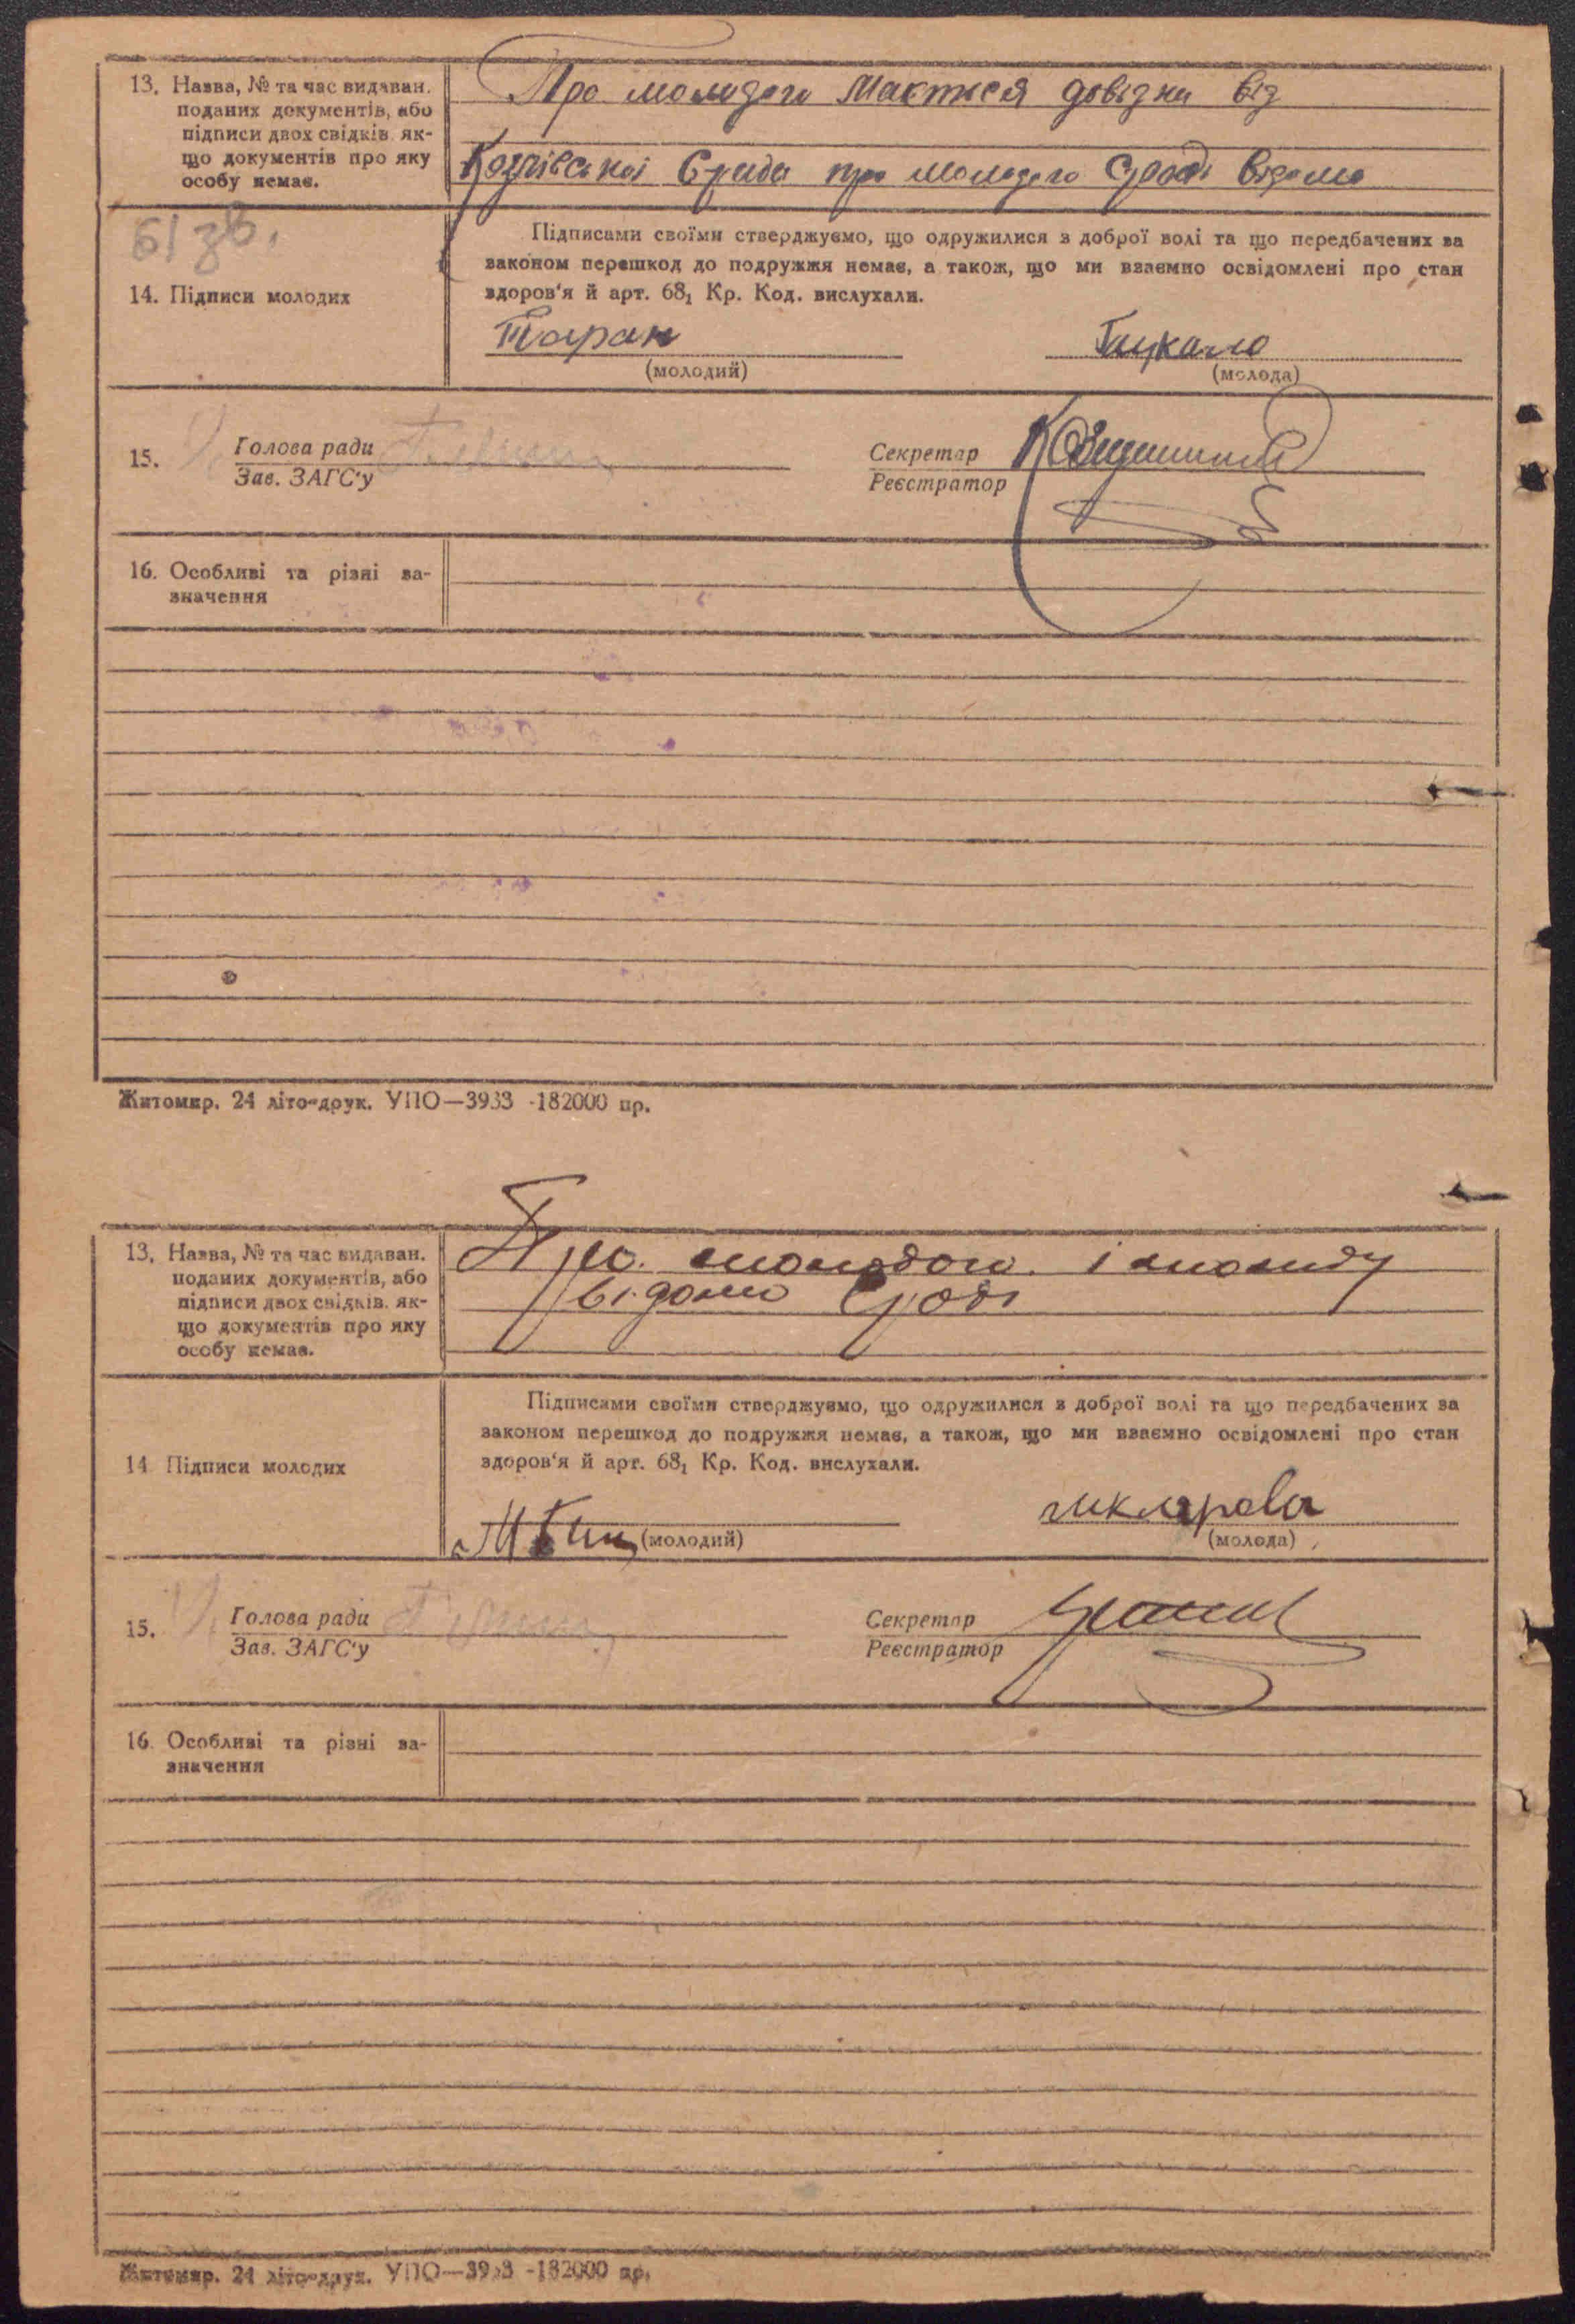 13. Назва, № та час видаван.
поданих документів, або
підписи двох свідків, як-
що документів про яку
особу немає.
Про молодого Мактися довідка від
Сради про молодого Сраді відомо
61 зв.
Підписами своїми стверджуємо, що одружилися з доброї волі та що передбачених за
законом перешкод до подружжя немає, а також, що ми взаємно освідомлені про стан
здоров'я й арт. 68₁ Кр. Код. вислухали.
14. Підписи молодих
Таран
Гаукало
(молодий)
(молода)
15.
Голова ради
Зав. ЗАГС'у
Секретар
Реєстратор
16. Особливі та різні за-
значення
Житомир. 24 літо-друк. УПО—3933 -182000 пр.
13. Назва, № та час видаван.
поданих документів, або
підписи двох свідків, як-
що документів про яку
особу немає.
Про молодого і молоду
відомо Сраді
Підписами своїми стверджуємо, що одружилися з доброї волі та що передбачених за
законом перешкод до подружжя немає, а також, що ми взаємно освідомлені про стан
здоров'я й арт. 68₁ Кр. Код. вислухали.
14 Підписи молодих
(молодий)
(молода)
15.
Голова ради
Зав. ЗАГС'у
Секретар
Реєстратор
16. Особливі та різні за-
значення
Житомир. 24 літо-друк. УПО—3933 -182000 пр.